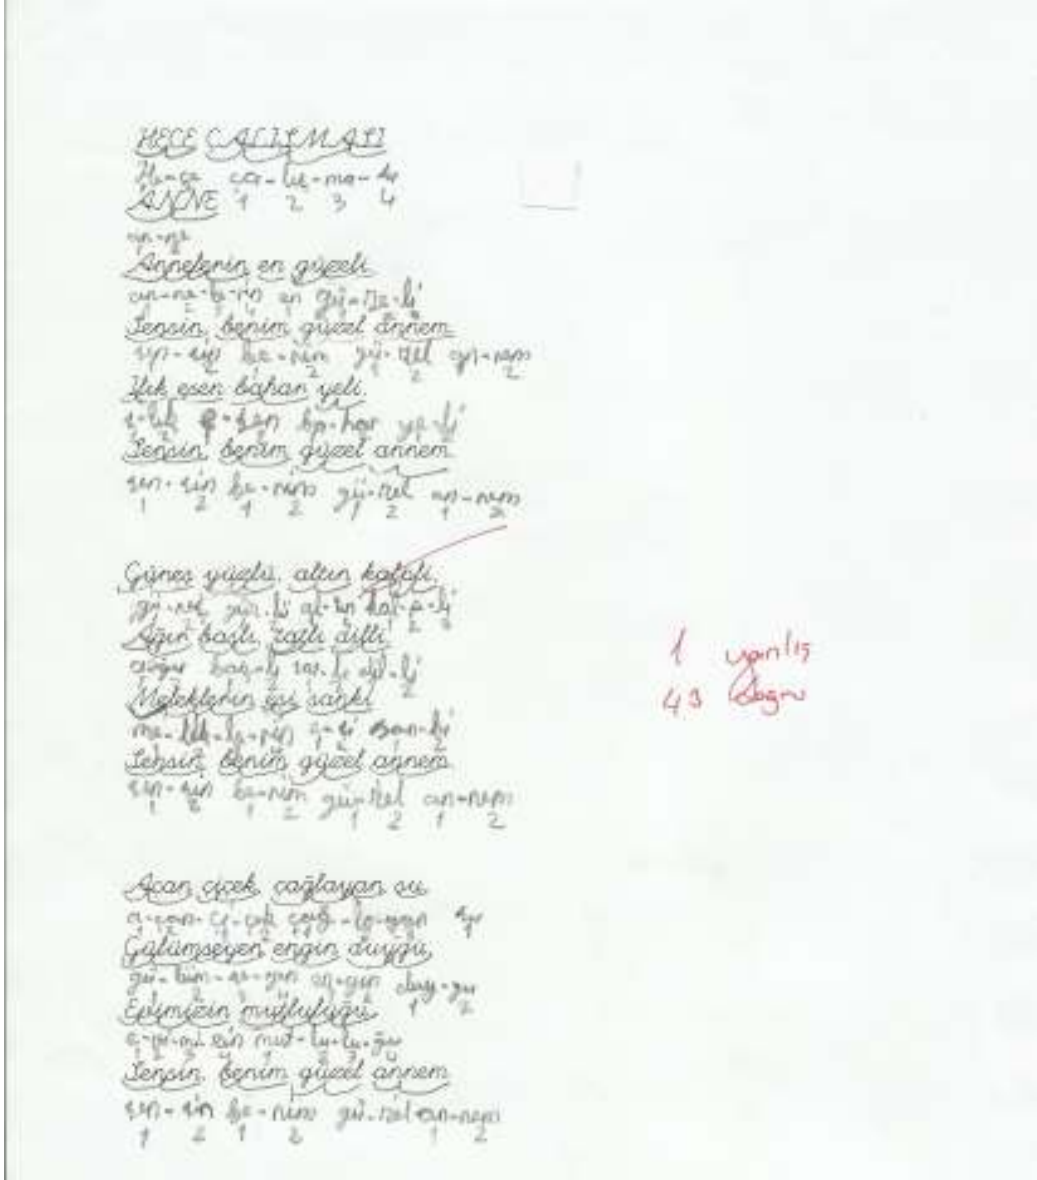 HECE ÇALIŞMASI
He-ce ça-lış-ma-sı
1 2 3 4
ANNE
an-ne
Annelerin en güzeli
an-ne-le-rin en gü-ze-li
Sensin, benim güzel annem.
sen-sin be-nim gü-zel an-nem
Ilık esen bahar yeli.
ı-lık e-sen ba-har ye-li
Sensin, benim güzel annem.
sen-sin be-nim gü-zel an-nem
1 2 1 2 1 2 1 2
Güneş yüzlü, altın kalpli,
yüz-lü al-tın kal-p-li
Ağır başlı, tatlı dilli
baş-lı dil-li
1 yanlış
43 doğru
Meleklerin eşi sanki
me-lek-le-rin e-şi san-ki
Sensin, benim güzel annem.
sen-sin be-nim gü-zel an-nem
1 2 1 2 1 2 1 2
Açan çiçek, çağlayan su,
a-çan-çi-çek çağ-la-yan su
Gülümseyen engin duygu,
gü-lüm-se-yen en-gin duy-gu
1 2
Evimizin mutluluğu,
e-vi-mi-zin mut-lu-lu-ğu
Sensin, benim güzel annem.
sen-sin be-nim gü-zel an-nem
1 2 1 2 1 2